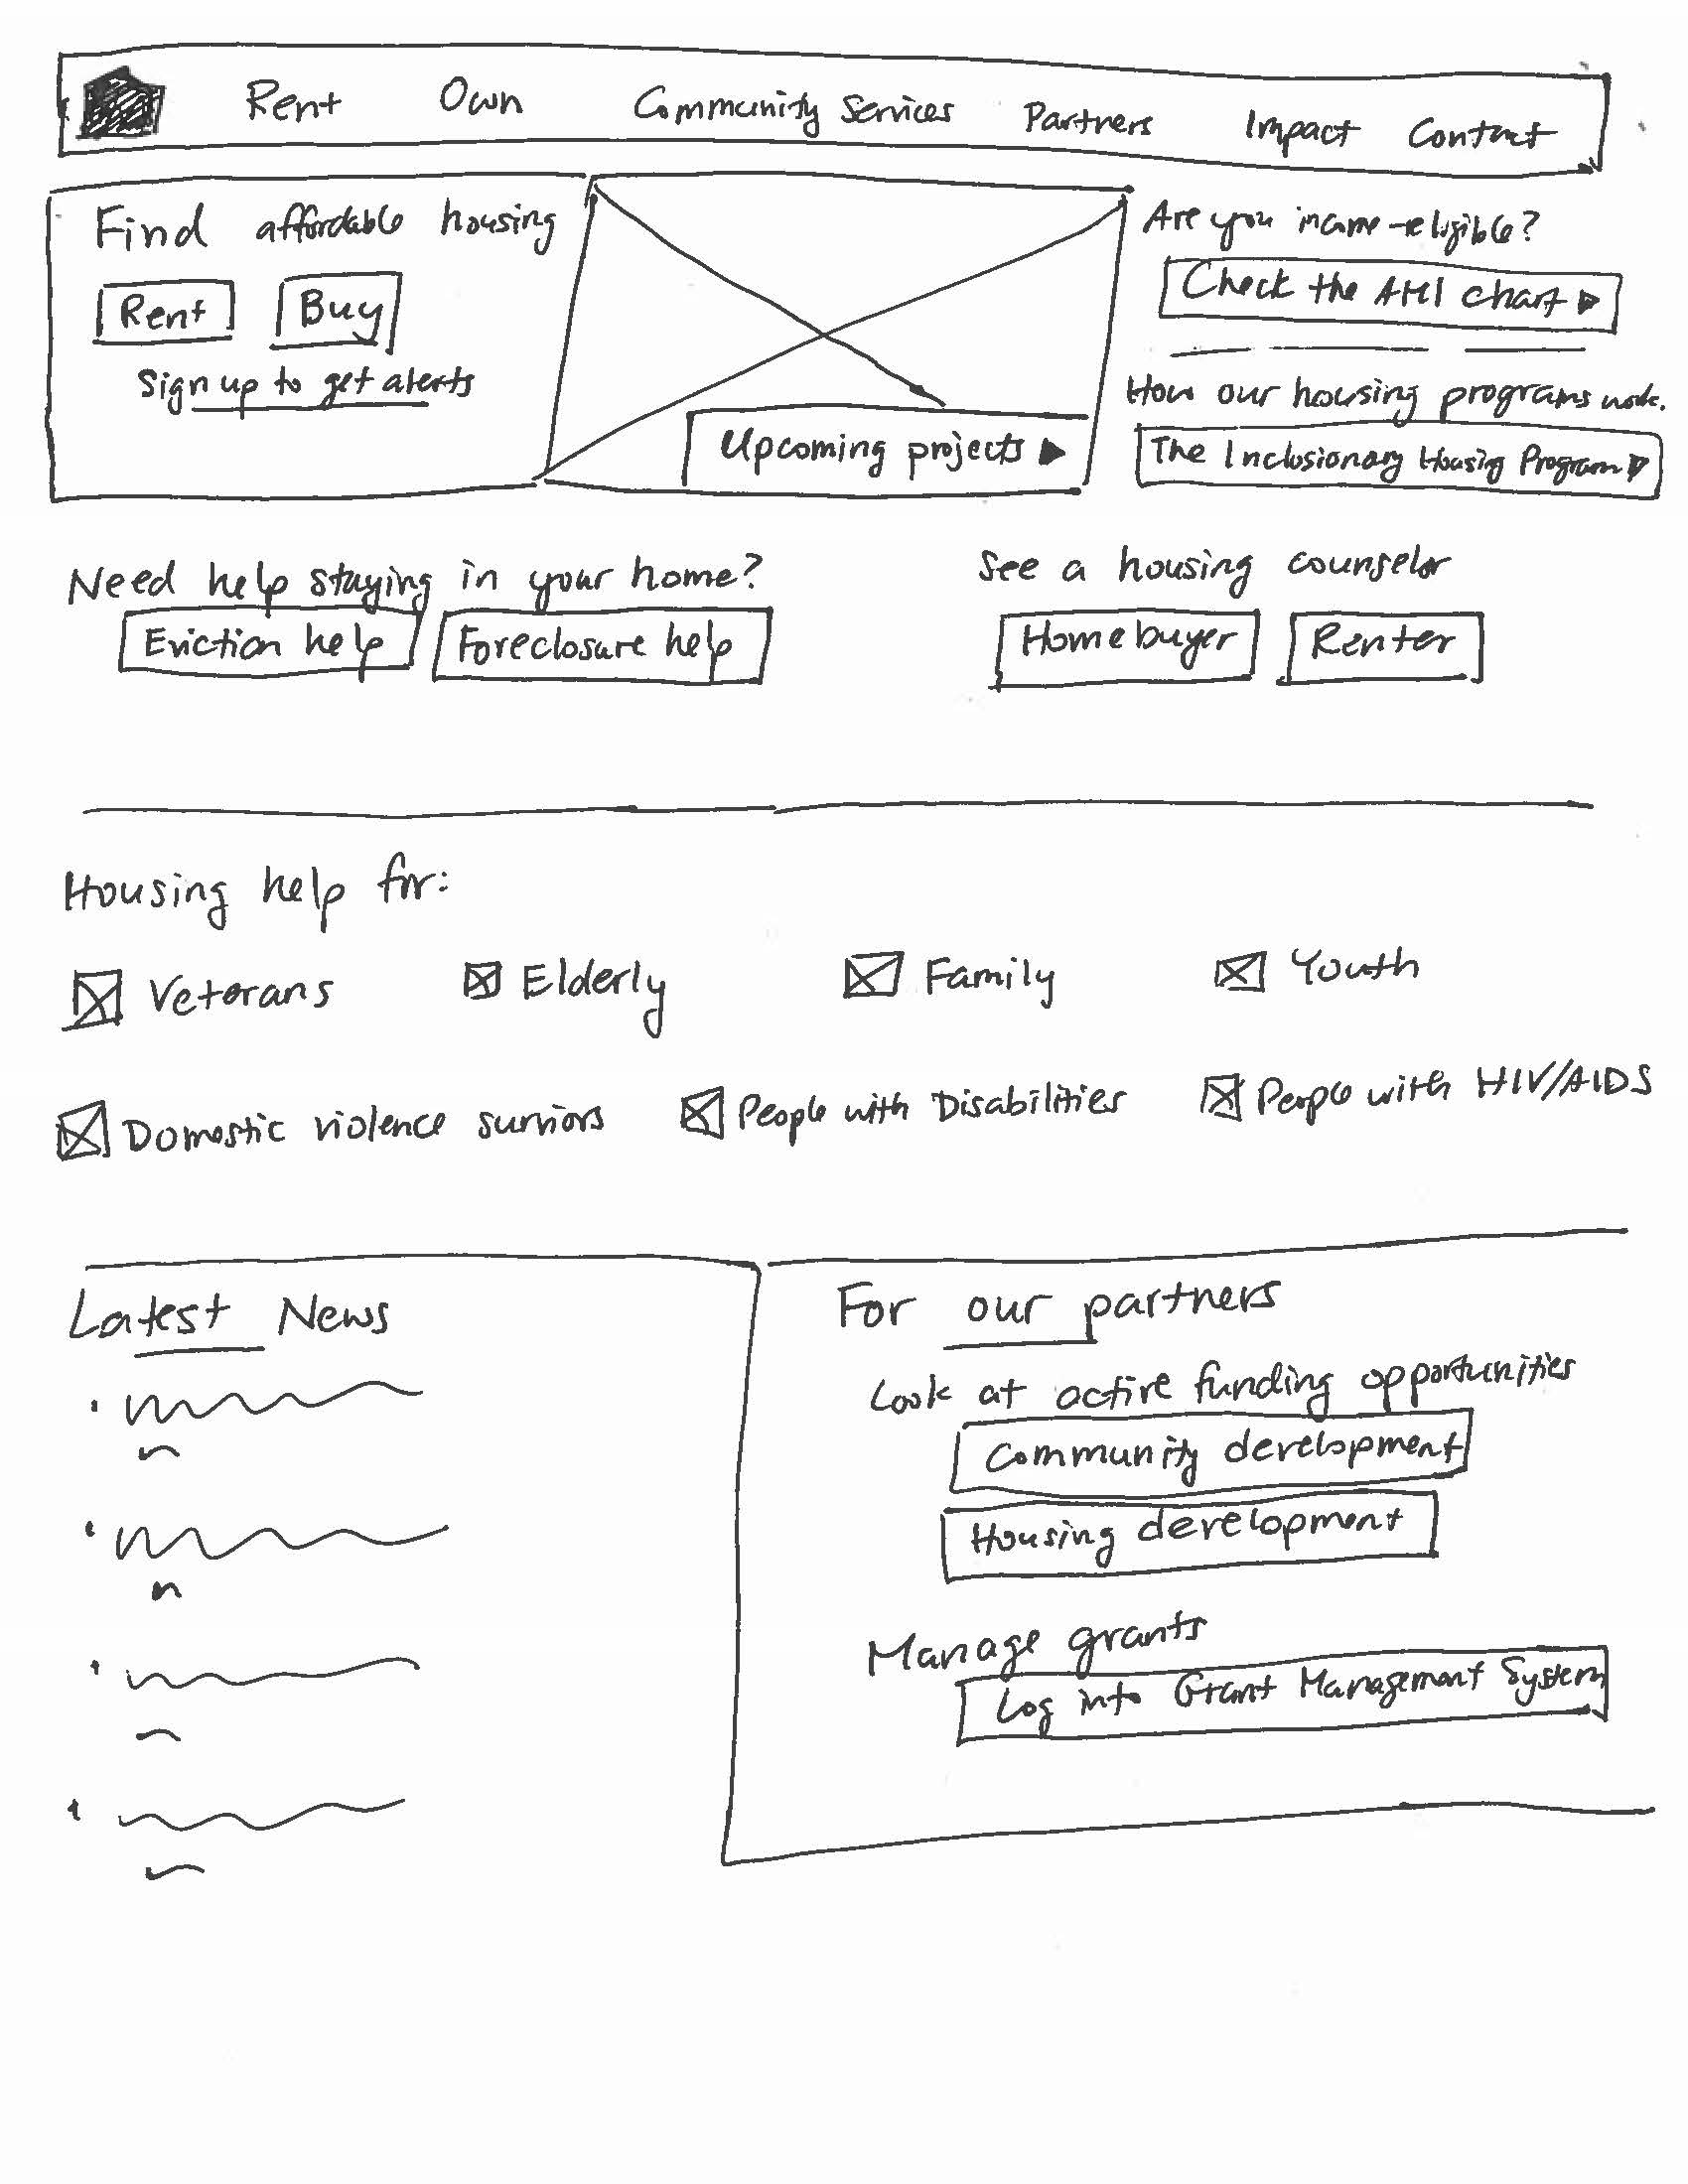 Rent Own Community Services Partners Impact Contact
Find affordable housing
Rent Buy
Sign up to get alerts
Upcoming projects
Are you income-eligible?
Check the AMI chart
How our housing programs work.
The Inclusionary Housing Program
Need help staying in your home?
Eviction help Foreclosure help
See a housing counselor
Homebuyer Renter
Housing help for:
Veterans Elderly Family Youth
Domestic violence surviors People with Disabilities People with HIV/AIDS
Latest News
For our partners
Look at active funding opportunities
Community development
Housing development
Manage grants
Log into Grant Management System